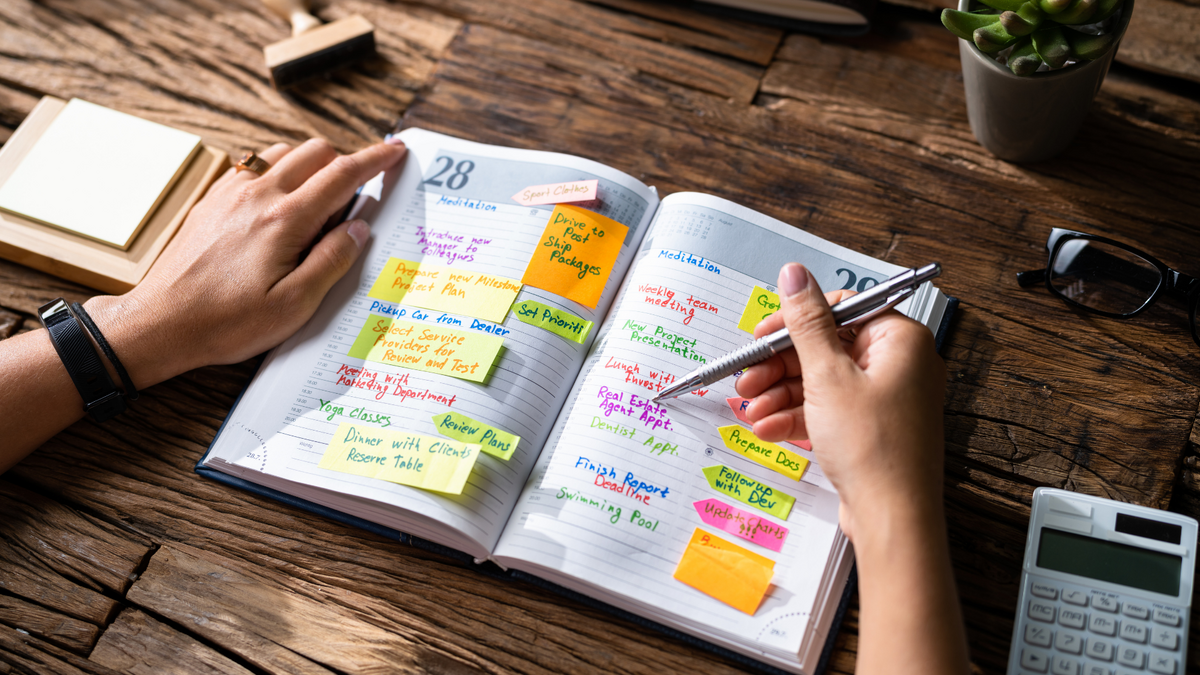 28
Sport Clothes
Meditation
Drive to
Post
Ship
Packages
Introduce new
Manager to
Colleagues
Prepare new Milestone
Project Plan
Set Prioriti
Pickup Car from Dealer
Select Service
Providers for
Review and Test
Meeting with
Marketing Department
Yoga Classes
Review Plans
Dinner with Clients
Reserve Table
29
Meditation
Weekly team
meeting
Get
New Project
Presentation
Lunch with
Real Estate
Agent Appt.
Dentist Appt.
Prepare Docs
Finish Report
Deadline
Follow up
with Dev
Swimming Pool
Update Charts
!!!